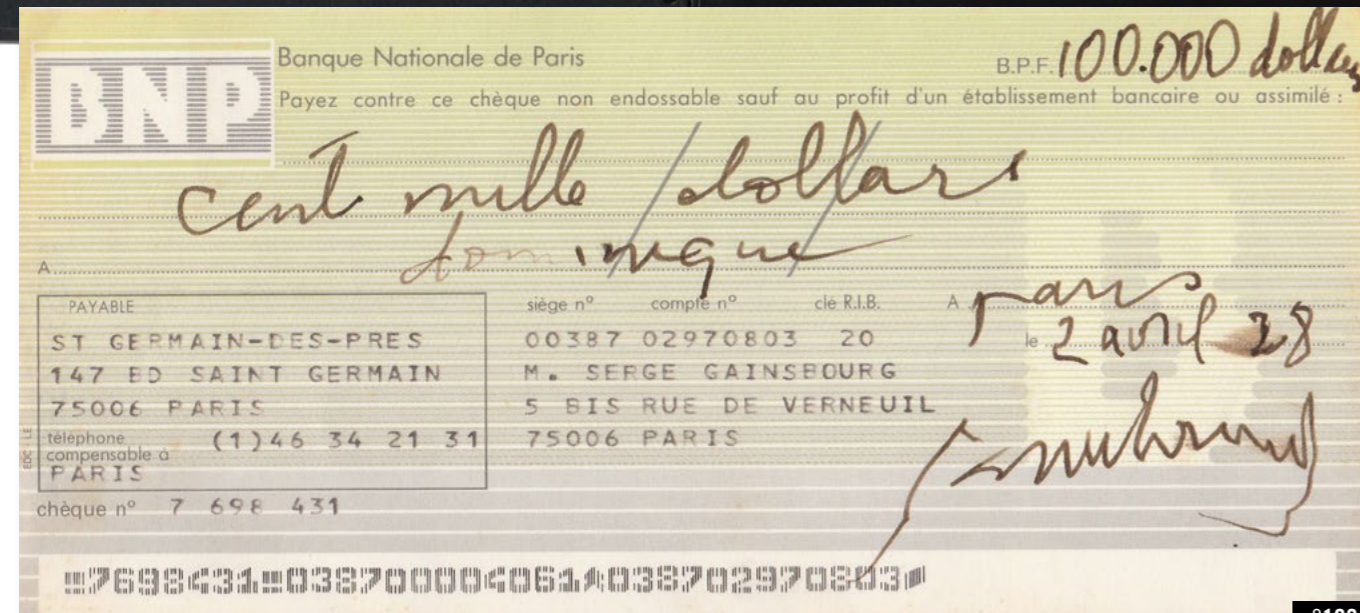 BNP
Banque Nationale de Paris
B.P.F. 100.000 dollars
Payez contre ce chèque non endossable sauf au profit d'un établissement bancaire ou assimilé :
cent mille dollars
A dominique
PAYABLE
ST GERMAIN-DES-PRES
147 BD SAINT GERMAIN
75006 PARIS
téléphone (1)46 34 21 31
compensable à
PARIS
chèque n° 7 698 431
siège n° compte n° clé R.I.B.
00387 02970803 20
M. SERGE GAINSBOURG
5 BIS RUE DE VERNEUIL
75006 PARIS
A paris
le 2 avril 28
EDC LE
7698431 038700004061 038702970803